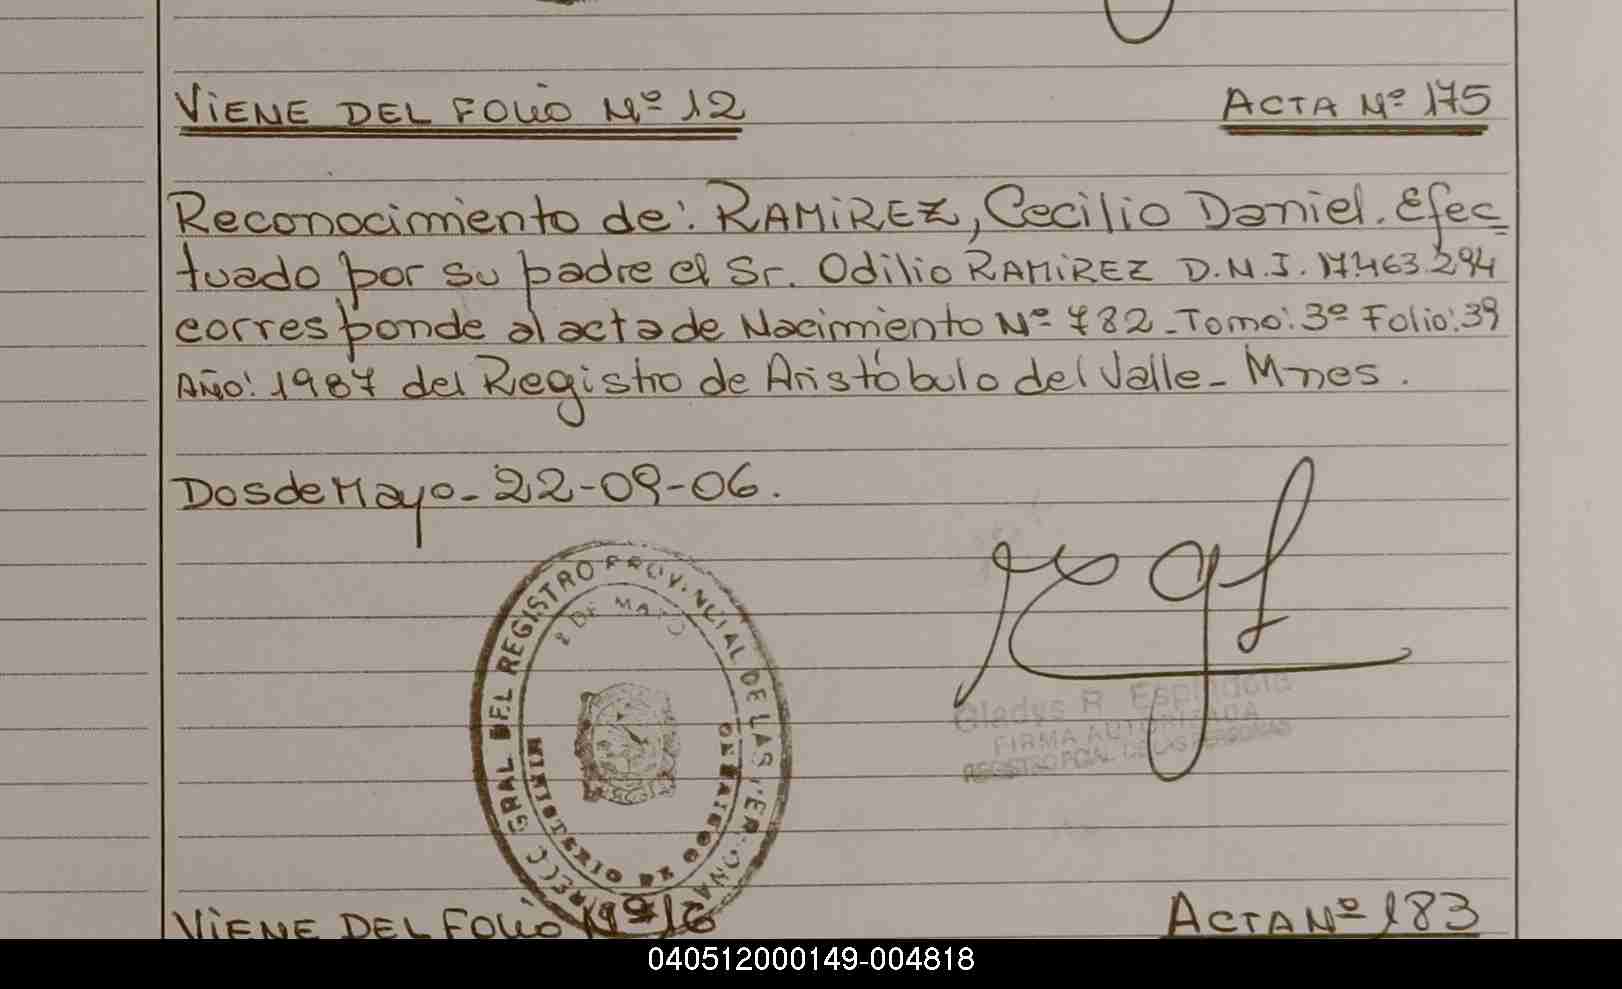 ViENE DEL FOLiO Nº 12
ACTA Nº 175
Reconocimiento de: RAMiREZ, Cecilio Daniel. Efec=
tuado por su padre el Sr. Odilio RAMiREZ D.N.I. 17463.294
corresponde al acta de Nacimiento Nº 782_Tomo: 3º Folio:39
AÑO: 1987 del Registro de Aristóbulo del Valle_ Mnes.
Dos de Mayo_ 22-09-06.
GRAL DEL REGISTRO PROVINCIAL DE LAS PERSONAS
2 DE MAYO
MINISTERIO DE GOBIERNO
Gladys R. Espindola
FIRMA AUTORIZADA
REGISTRO PCIAL. DE LAS PERSONAS
ViENE DEL FOLiO Nº 16
ACTA Nº 183
040512000149-004818